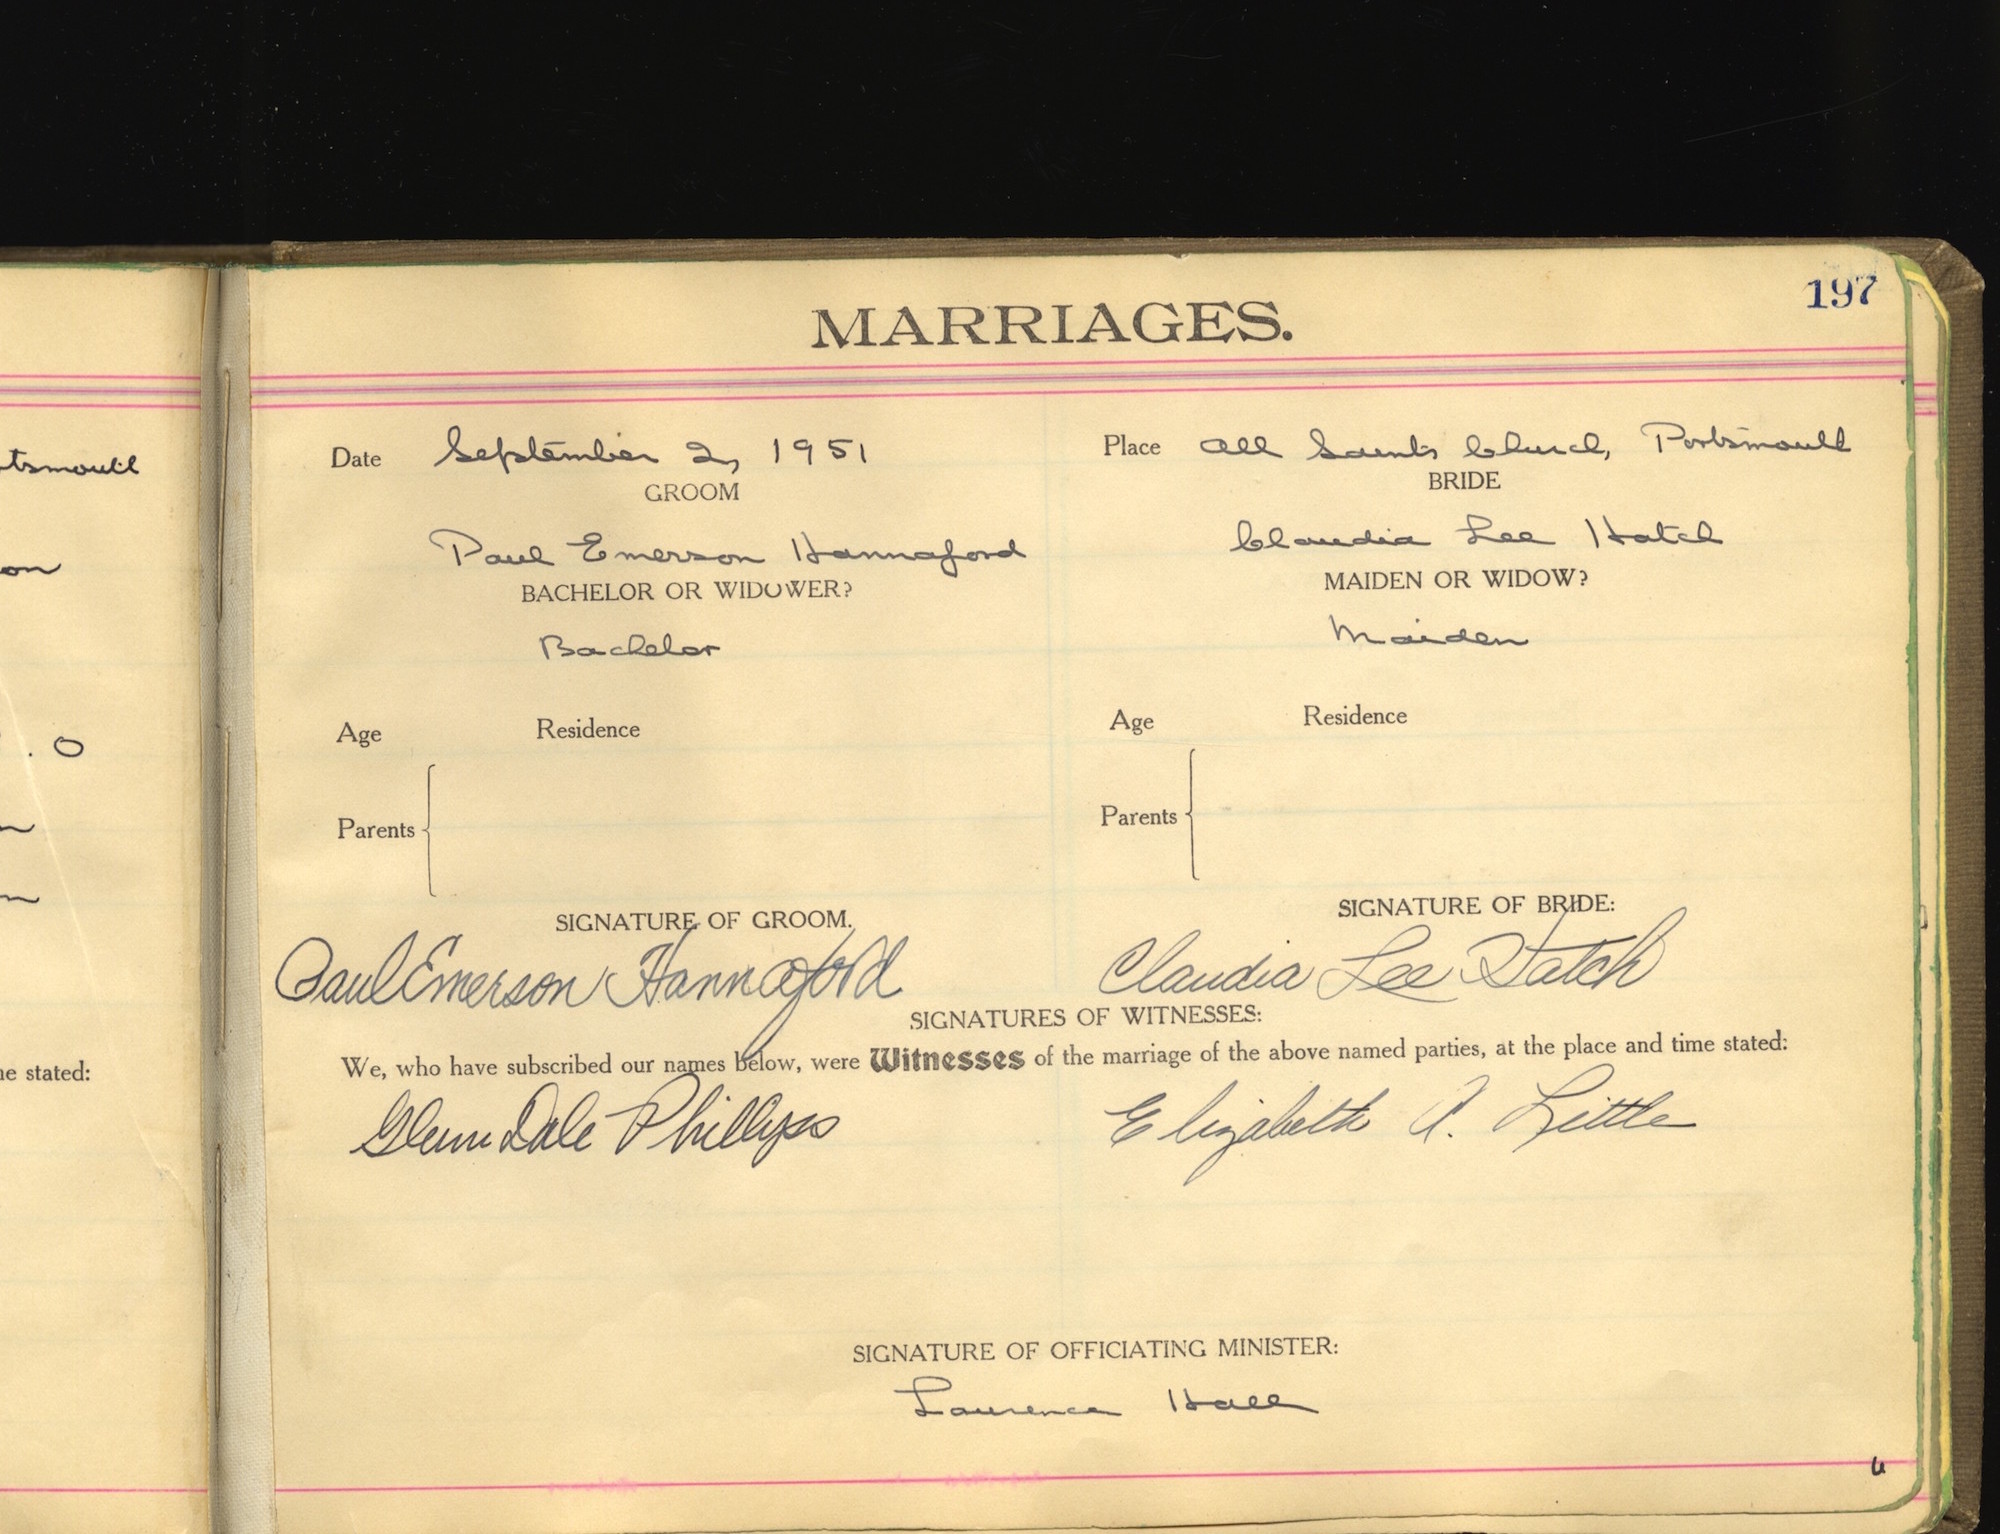 197
MARRIAGES.
Date September 2, 1951
Place All Saints Church, Portsmouth
GROOM
BRIDE
Paul Emerson Hannaford
Claudia Lee Hatch
BACHELOR OR WIDOWER?
MAIDEN OR WIDOW?
Bachelor
Maiden
Age Residence
Age Residence
Parents
Parents
SIGNATURE OF GROOM.
SIGNATURE OF BRIDE:
Paul Emerson Hannaford
Claudia Lee Hatch
SIGNATURES OF WITNESSES:
We, who have subscribed our names below, were Witnesses of the marriage of the above named parties, at the place and time stated:
Glenn Dale Phillips
Elizabeth A. Little
SIGNATURE OF OFFICIATING MINISTER:
Laurence Hall
tsmouth
on
. O
ne stated: